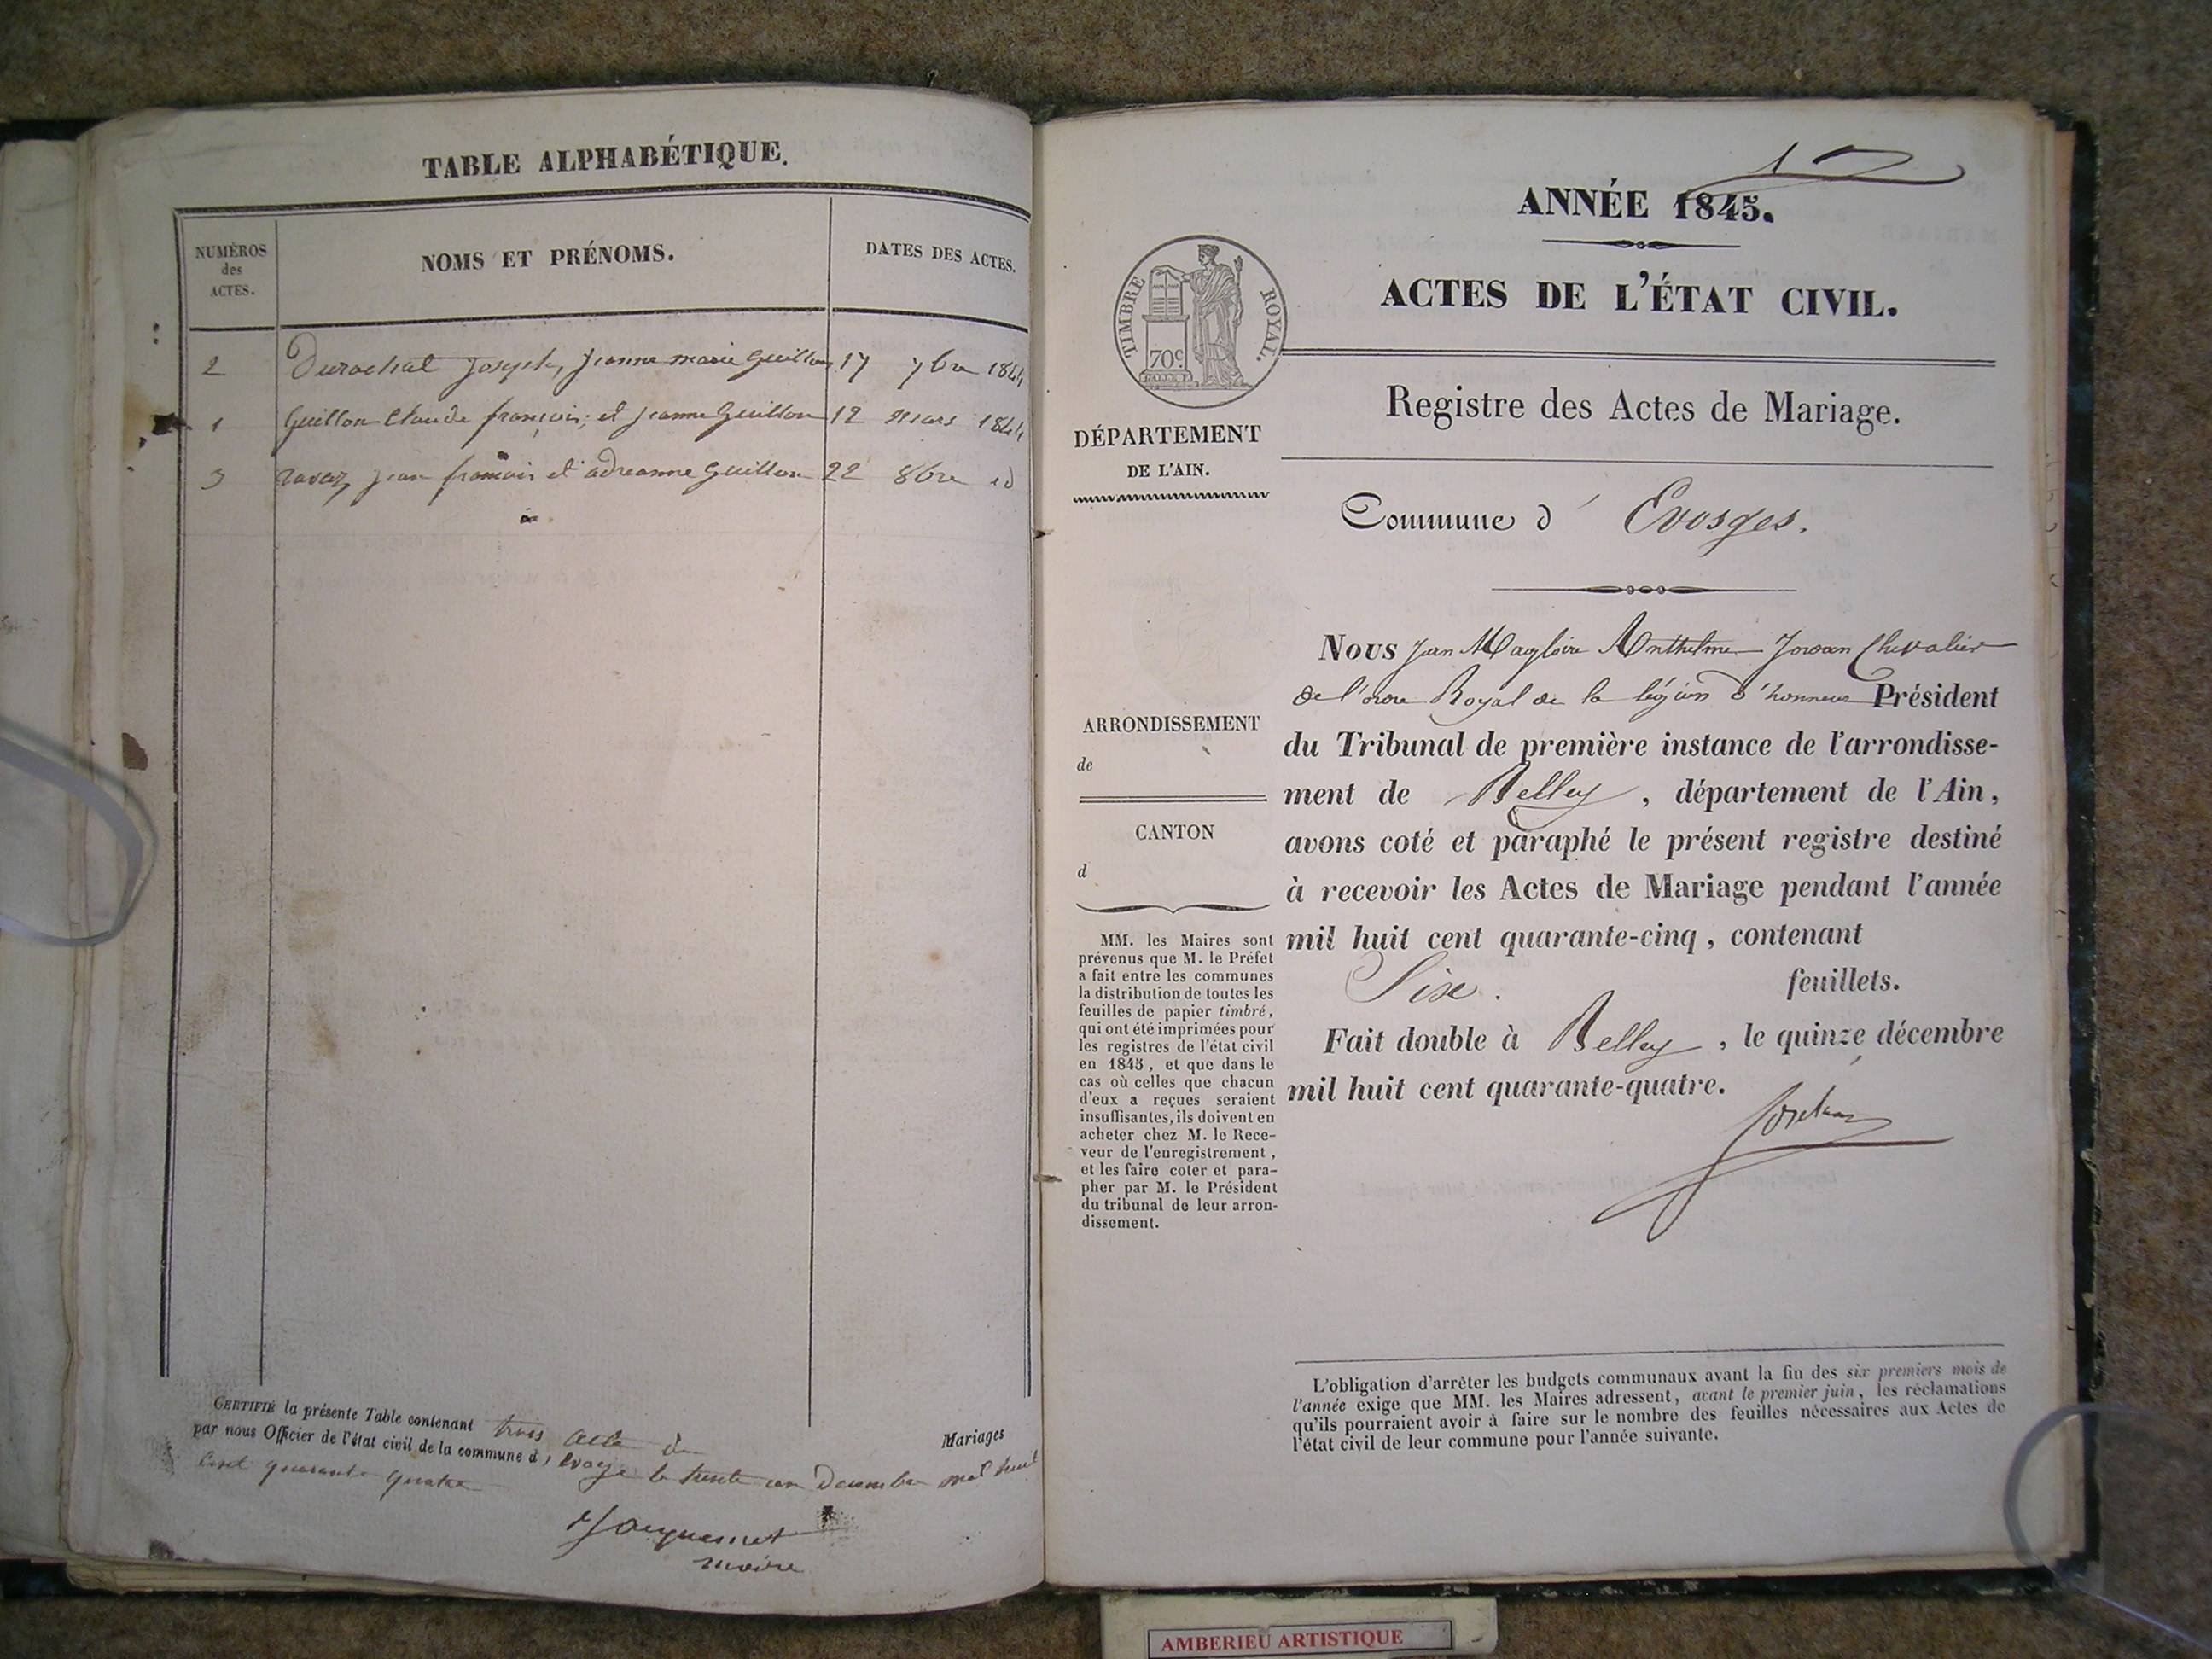 TABLE ALPHABÉTIQUE.
NUMÉROS
des
ACTES.
NOMS ET PRÉNOMS.
DATES DES ACTES.
2 Durochat Joseph, Jeanne marie Guillon 17 7bre 1844
1 Guillon Claude françois, et Jeanne Guillon 12 Mars 1844
3 ravaz jean francois et adreanne Guillon 22 8bre id
CERTIFIÉ la présente Table contenant trois acte de Mariages
par nous Officier de l'état civil de la commune d' Evoge le trente un Decembre mil huit
Cent quarante quatre
Jacquemet
maire
1
ANNÉE 1845.
ACTES DE L'ÉTAT CIVIL.
TIMBRE ROYAL.
70c
Registre des Actes de Mariage.
DÉPARTEMENT
DE L'AIN.
Commune d' Evosges.
Nous Jean Magloire Anthelme Jordan Chevalier
de l'ordre Royal de la légion d'honneur Président
du Tribunal de première instance de l'arrondisse-
ment de Belley, département de l'Ain,
avons coté et paraphé le présent registre destiné
à recevoir les Actes de Mariage pendant l'année
mil huit cent quarante-cinq, contenant
Six. feuillets.
Fait double à Belley, le quinze décembre
mil huit cent quarante-quatre.
Jordan
ARRONDISSEMENT
de
CANTON
d
MM. les Maires sont
prévenus que M. le Préfet
a fait entre les communes
la distribution de toutes les
feuilles de papier timbré,
qui ont été imprimées pour
les registres de l'état civil
en 1845, et que dans le
cas où celles que chacun
d'eux a reçues seraient
insuffisantes, ils doivent en
acheter chez M. le Rece-
veur de l'enregistrement,
et les faire coter et para-
pher par M. le Président
du tribunal de leur arron-
dissement.
L'obligation d'arrêter les budgets communaux avant la fin des six premiers mois de
l'année exige que MM. les Maires adressent, avant le premier juin, les réclamations
qu'ils pourraient avoir à faire sur le nombre des feuilles nécessaires aux Actes de
l'état civil de leur commune pour l'année suivante.
AMBERIEU ARTISTIQUE